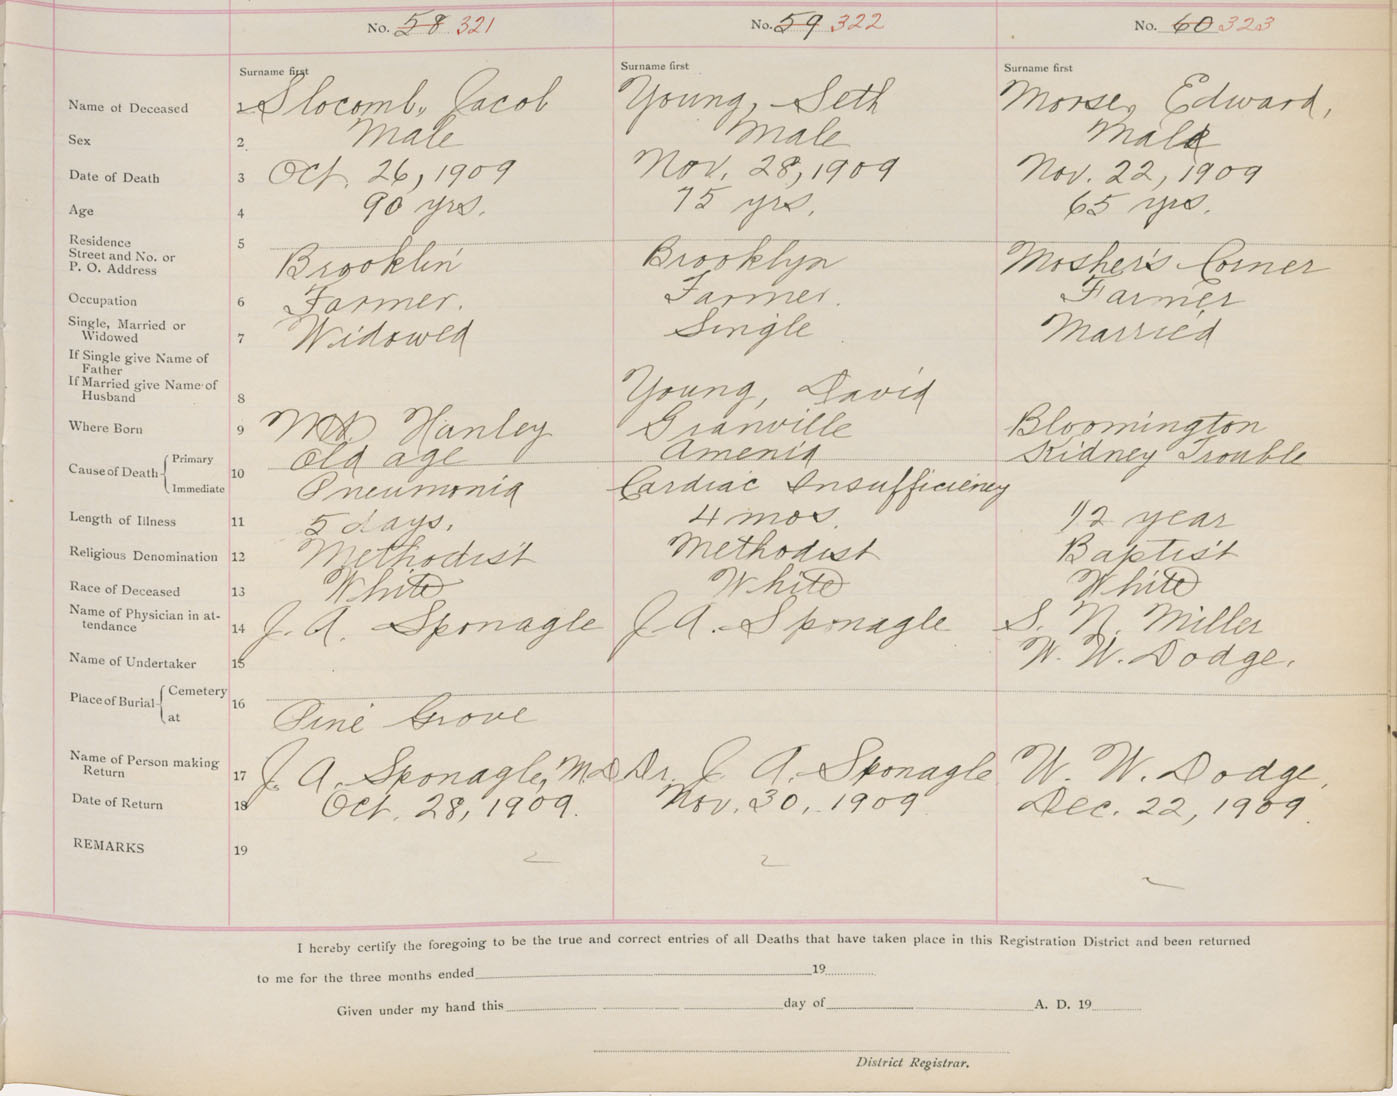 No. 58 321 No. 59 322 No. 60 323
Surname first Surname first Surname first
Name of Deceased 1 Slocomb, Jacob Young, Seth Morse, Edward,
Sex 2 Male Male Male
Date of Death 3 Oct. 26, 1909 Nov. 28, 1909 Nov. 22, 1909
Age 4 90 yrs. 75 yrs. 65 yrs.
Residence 5
Street and No. or
P. O. Address Brooklin Brooklyn Mosher's Corner
Occupation 6 Farmer. Farmer. Farmer
Single, Married or
Widowed 7 Widowed Single Married
If Single give Name of
Father
If Married give Name of
Husband 8 Young, David
Where Born 9 Mt Hanley Granville Bloomington
Cause of Death Primary 10 Old age Amenia Kidney Trouble
Immediate Pneumonia Cardiac Insufficiency
Length of Illness 11 5 days. 4 mos. 1/2 year
Religious Denomination 12 Methodist Methodist Baptist
Race of Deceased 13 White White White
Name of Physician in at-
tendance 14 J. A. Sponagle J. A. Sponagle S. N. Miller
Name of Undertaker 15 W. W. Dodge.
Place of Burial Cemetery 16
at Pine Grove
Name of Person making
Return 17 J. A. Sponagle, M.D. Dr. J. A. Sponagle W. W. Dodge,
Date of Return 18 Oct. 28, 1909. Nov. 30, 1909 Dec. 22, 1909.
REMARKS 19
I hereby certify the foregoing to be the true and correct entries of all Deaths that have taken place in this Registration District and been returned
to me for the three months ended 19
Given under my hand this day of A. D. 19
District Registrar.